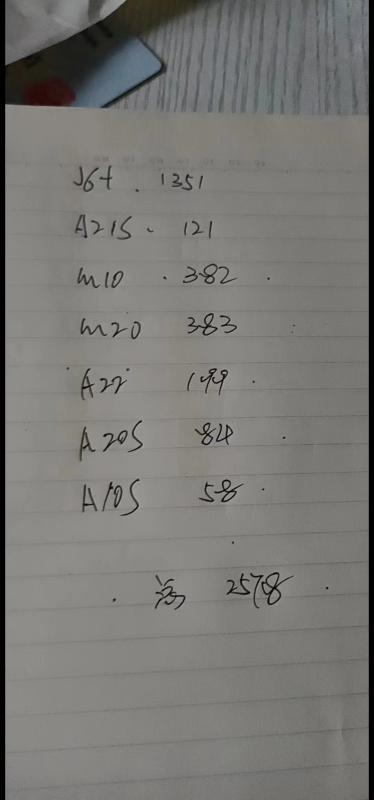 J6+ . 1351
A21S . 121
M10 . 382 .
M20 383
A22 199 .
A20S 84 .
A10S 58 .
2578 .